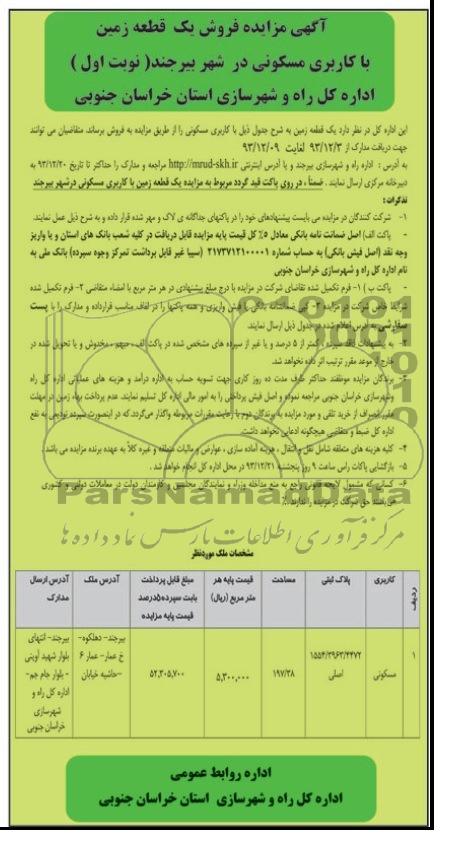 آگهی مزایده فروش یک قطعه زمین
با کاربری مسکونی در شهر بیرجند( نوبت اول )
اداره کل راه و شهرسازی استان خراسان جنوبی
این اداره کل در نظر دارد یک قطعه زمین به شرح جدول ذیل با کاربری مسکونی را از طریق مزایده به فروش برساند. متقاضیان می توانند
جهت دریافت مدارک از ۹۳/۱۲/۳ لغایت ۹۳/۱۲/۰۹
به آدرس : اداره راه و شهرسازی بیرجند و یا آدرس اینترنتی http://mrud-skh.ir مراجعه و مدارک را حداکثر تا تاریخ ۹۳/۱۲/۲۰ به
دبیرخانه مرکزی ارسال نمایند . ضمناً ، در روی پاکت قید گردد مربوط به مزایده یک قطعه زمین با کاربری مسکونی درشهر بیرجند
تذکرات :
۱- شرکت کنندگان در مزایده می بایست پیشنهادهای خود را در پاکتهای جداگانه ی لاک و مهر شده قرار داده و به شرح ذیل عمل نمایند.
- پاکت الف) اصل ضمانت نامه بانکی معادل ۵٪ کل قیمت پایه مزایده قابل دریافت در کلیه شعب بانک های استان و یا واریز
وجه نقد (اصل فیش بانکی) به حساب شماره ۲۱۷۳۷۱۲۱۰۰۰۰۱ (سیبا غیر قابل برداشت تمرکز وجوه سپرده) بانک ملی به
نام اداره کل راه و شهرسازی خراسان جنوبی
- پاکت ب ) ۱- فرم تکمیل شده تقاضای شرکت در مزایده با درج مبلغ پیشنهادی در هر متر مربع با امضاء متقاضی ۲- فرم تکمیل شده
شرایط خاص شرکت در مزایده ۳- کپی ضمانتنامه بانکی یا فیش واریزی و همه پاکتها را در لفاف مناسب قرارداده و مدارک را با پست
سفارشی به آدرس اعلام شده در جدول ذیل ارسال نمایند.
۲- به پیشنهادات فاقد سپرده ، کمتر از ۵ درصد و یا غیر از سپرده های مشخص شده در پاکت الف، مبهم ، مخدوش و یا تحویل شده در
خارج از موعد مقرر ترتیب اثر داده نخواهد شد.
۳- برندگان مزایده موظفند حداکثر ظرف مدت ده روز کاری جهت تسویه حساب به اداره درآمد و هزینه های عملیاتی اداره کل راه
وشهرسازی خراسان جنوبی مراجعه نموده و اصل فیش پرداختی را به امور مالی اداره کل تسلیم نمایند. عدم پرداخت بهاء زمین در مهلت
مقرر انصراف از خرید تلقی و مورد مزایده به برندگان دوم با رعایت مقررات مربوطه واگذار می‌گردد.که در اینصورت سپرده تودیعی به نفع
اداره کل ضبط و متقاضی هیچگونه ادعایی نخواهد داشت.
۴- کلیه هزینه های متعلقه شامل نقل و انتقال ، هزینه آماده سازی ، عوارض و مالیات متعلقه و غیره کلاً به عهده برنده مزایده می باشد.
۵- بازگشایی پاکات راس ساعت ۹ روز پنجشنبه ۹۳/۱۲/۲۱ در محل اداره کل انجام خواهد شد .
۶- کسانی که مشمول لایحه قانونی راجع به منع مداخله وزراء و نمایندگان مجلسین و کارمندان دولت در معاملات دولتی و کشوری
می‌باشند حق شرکت در مزایده را ندارند.
ParsNamadData
مرکز فرآوری اطلاعات پارس نماد داده ها
مشخصات ملک موردنظر
ردیف
کاربری
پلاک ثبتی
مساحت
قیمت پایه هر متر مربع (ریال)
مبلغ قابل پرداخت بابت سپرده۵درصد قیمت پایه مزایده
آدرس ملک
آدرس ارسال مدارک
۱
مسکونی
۱۵۵۴/۳۹۶۳/۴۴۷۲ اصلی
۱۹۷/۳۸
۵,۳۰۰,۰۰۰
۵۲,۳۰۵,۷۰۰
بیرجند- دهلکوه- خ عمار- عمار ۶ -حاشیه خیابان
بیرجند- انتهای بلوار شهید آوینی - بلوار جام جم- اداره کل راه و شهرسازی خراسان جنوبی
اداره روابط عمومی
اداره کل راه و شهرسازی استان خراسان جنوبی